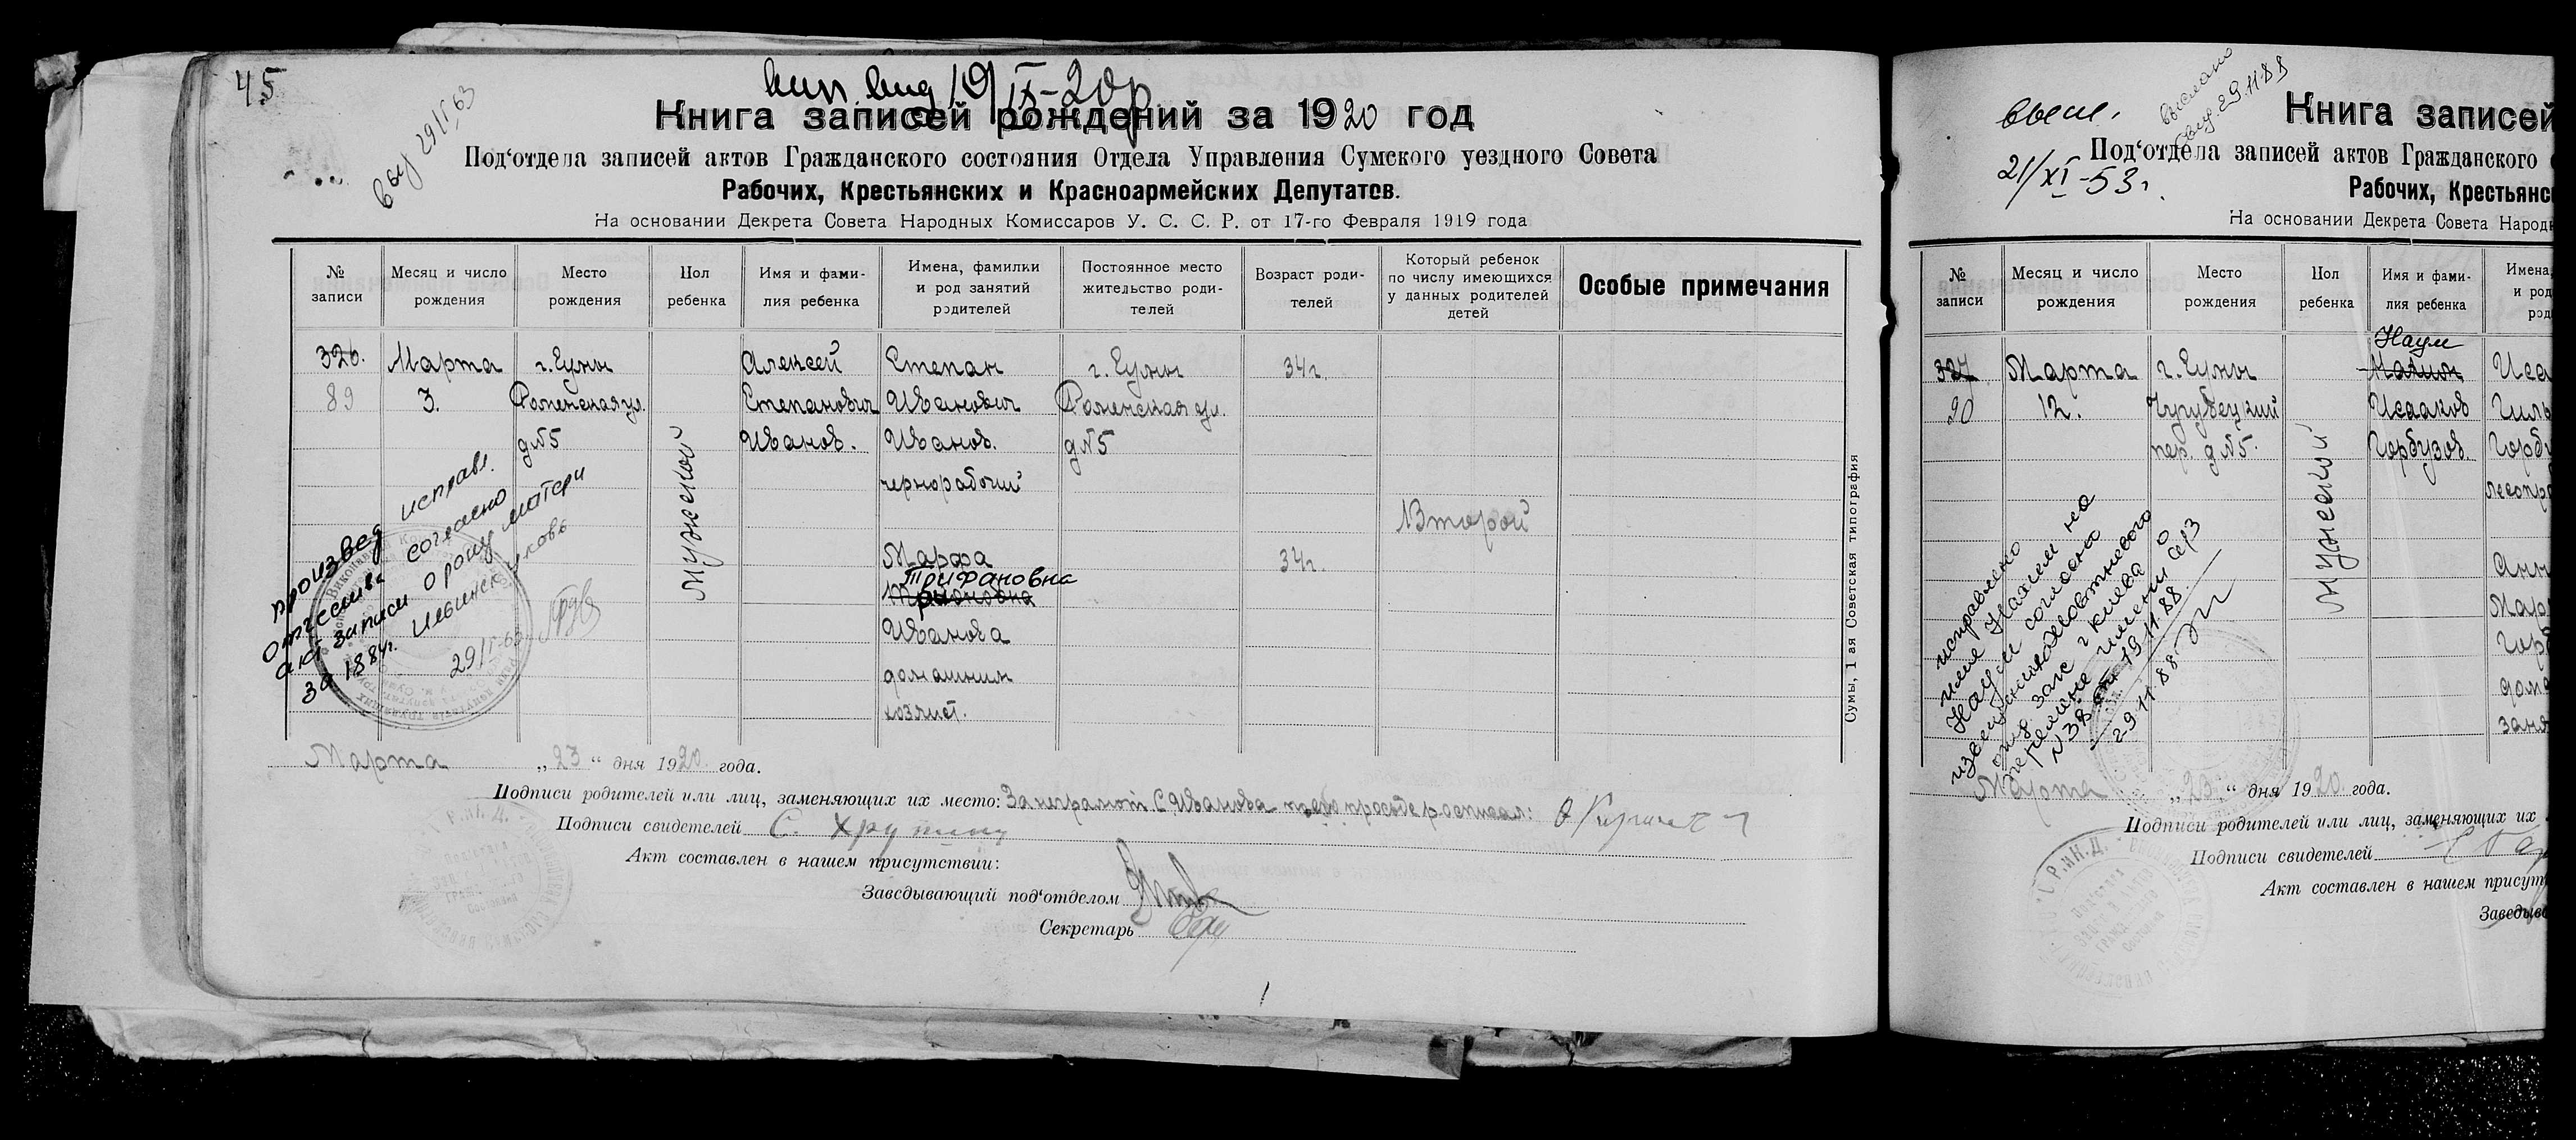 45
выд 29/I 63
19/IX-20р
Книга записей рождений за 1920 год
Под'отдела записей актов Гражданского состояния Отдела Управления Сумского уездного Совета
Рабочих, Крестьянских и Красноармейских Депутатов.
На основании Декрета Совета Народных Комиссаров У. С. С. Р. от 17-го Февраля 1919 года
№ записи
Месяц и число рождения
Место рождения
Пол ребенка
Имя и фамилия ребенка
Имена, фамилии и род занятий родителей
Постоянное место жительство родителей
Возраст родителей
Который ребенок по числу имеющихся у данных родителей детей
Особые примечания
326.
89
Марта
3.
г. Сумы
Роменская ул.
д№5
Мужской
Алексей
Степанович
Иванов.
Степан
Иванович
Иванов.
чернорабочий
Марфа
Трифановна
Иванова
домашним
хозяйст.
г. Сумы
Роменская ул.
д№5
34г.
34г.
Второй
произвед исправл.
отчества согласно
акт записи о рожд матери
за 1884г.
29/I-63
Сумы, 1 ая Советская типография
Марта „23“ дня 1920 года.
Подписи родителей или лиц, заменяющих их место: За неграмот С. Иванова по его просьбе расписал:
Подписи свидетелей С.
Акт составлен в нашем присутствии:
Заведывающий под'отделом
Секретарь
высл.
21/XI-53г.
выслано
29.11.88
Книга записей
Под'отдела записей актов Гражданского
Рабочих, Крестьянс
На основании Декрета Совета Народн
№ записи
Месяц и число рождения
Место рождения
Пол ребенка
Имя и фамилия ребенка
Имена,
и род
род
327
90
Марта
12.
г. Сумы
Чугуевский
пер. д№5.
Мужской
Наум
Исааков
Горбузов.
Иса
Гиль
Горбу
Анн
Гор
дома
заня
исправлено
имя на
Наум согласно
извещения
отд. загс г Киева о
перемене имени
N 38 от 19.11.88.
29.11.88.
Марта „23“ дня 1920. года.
Подписи родителей или лиц, заменяющих их
Подписи свидетелей
Акт составлен в нашем присут
Заведыв